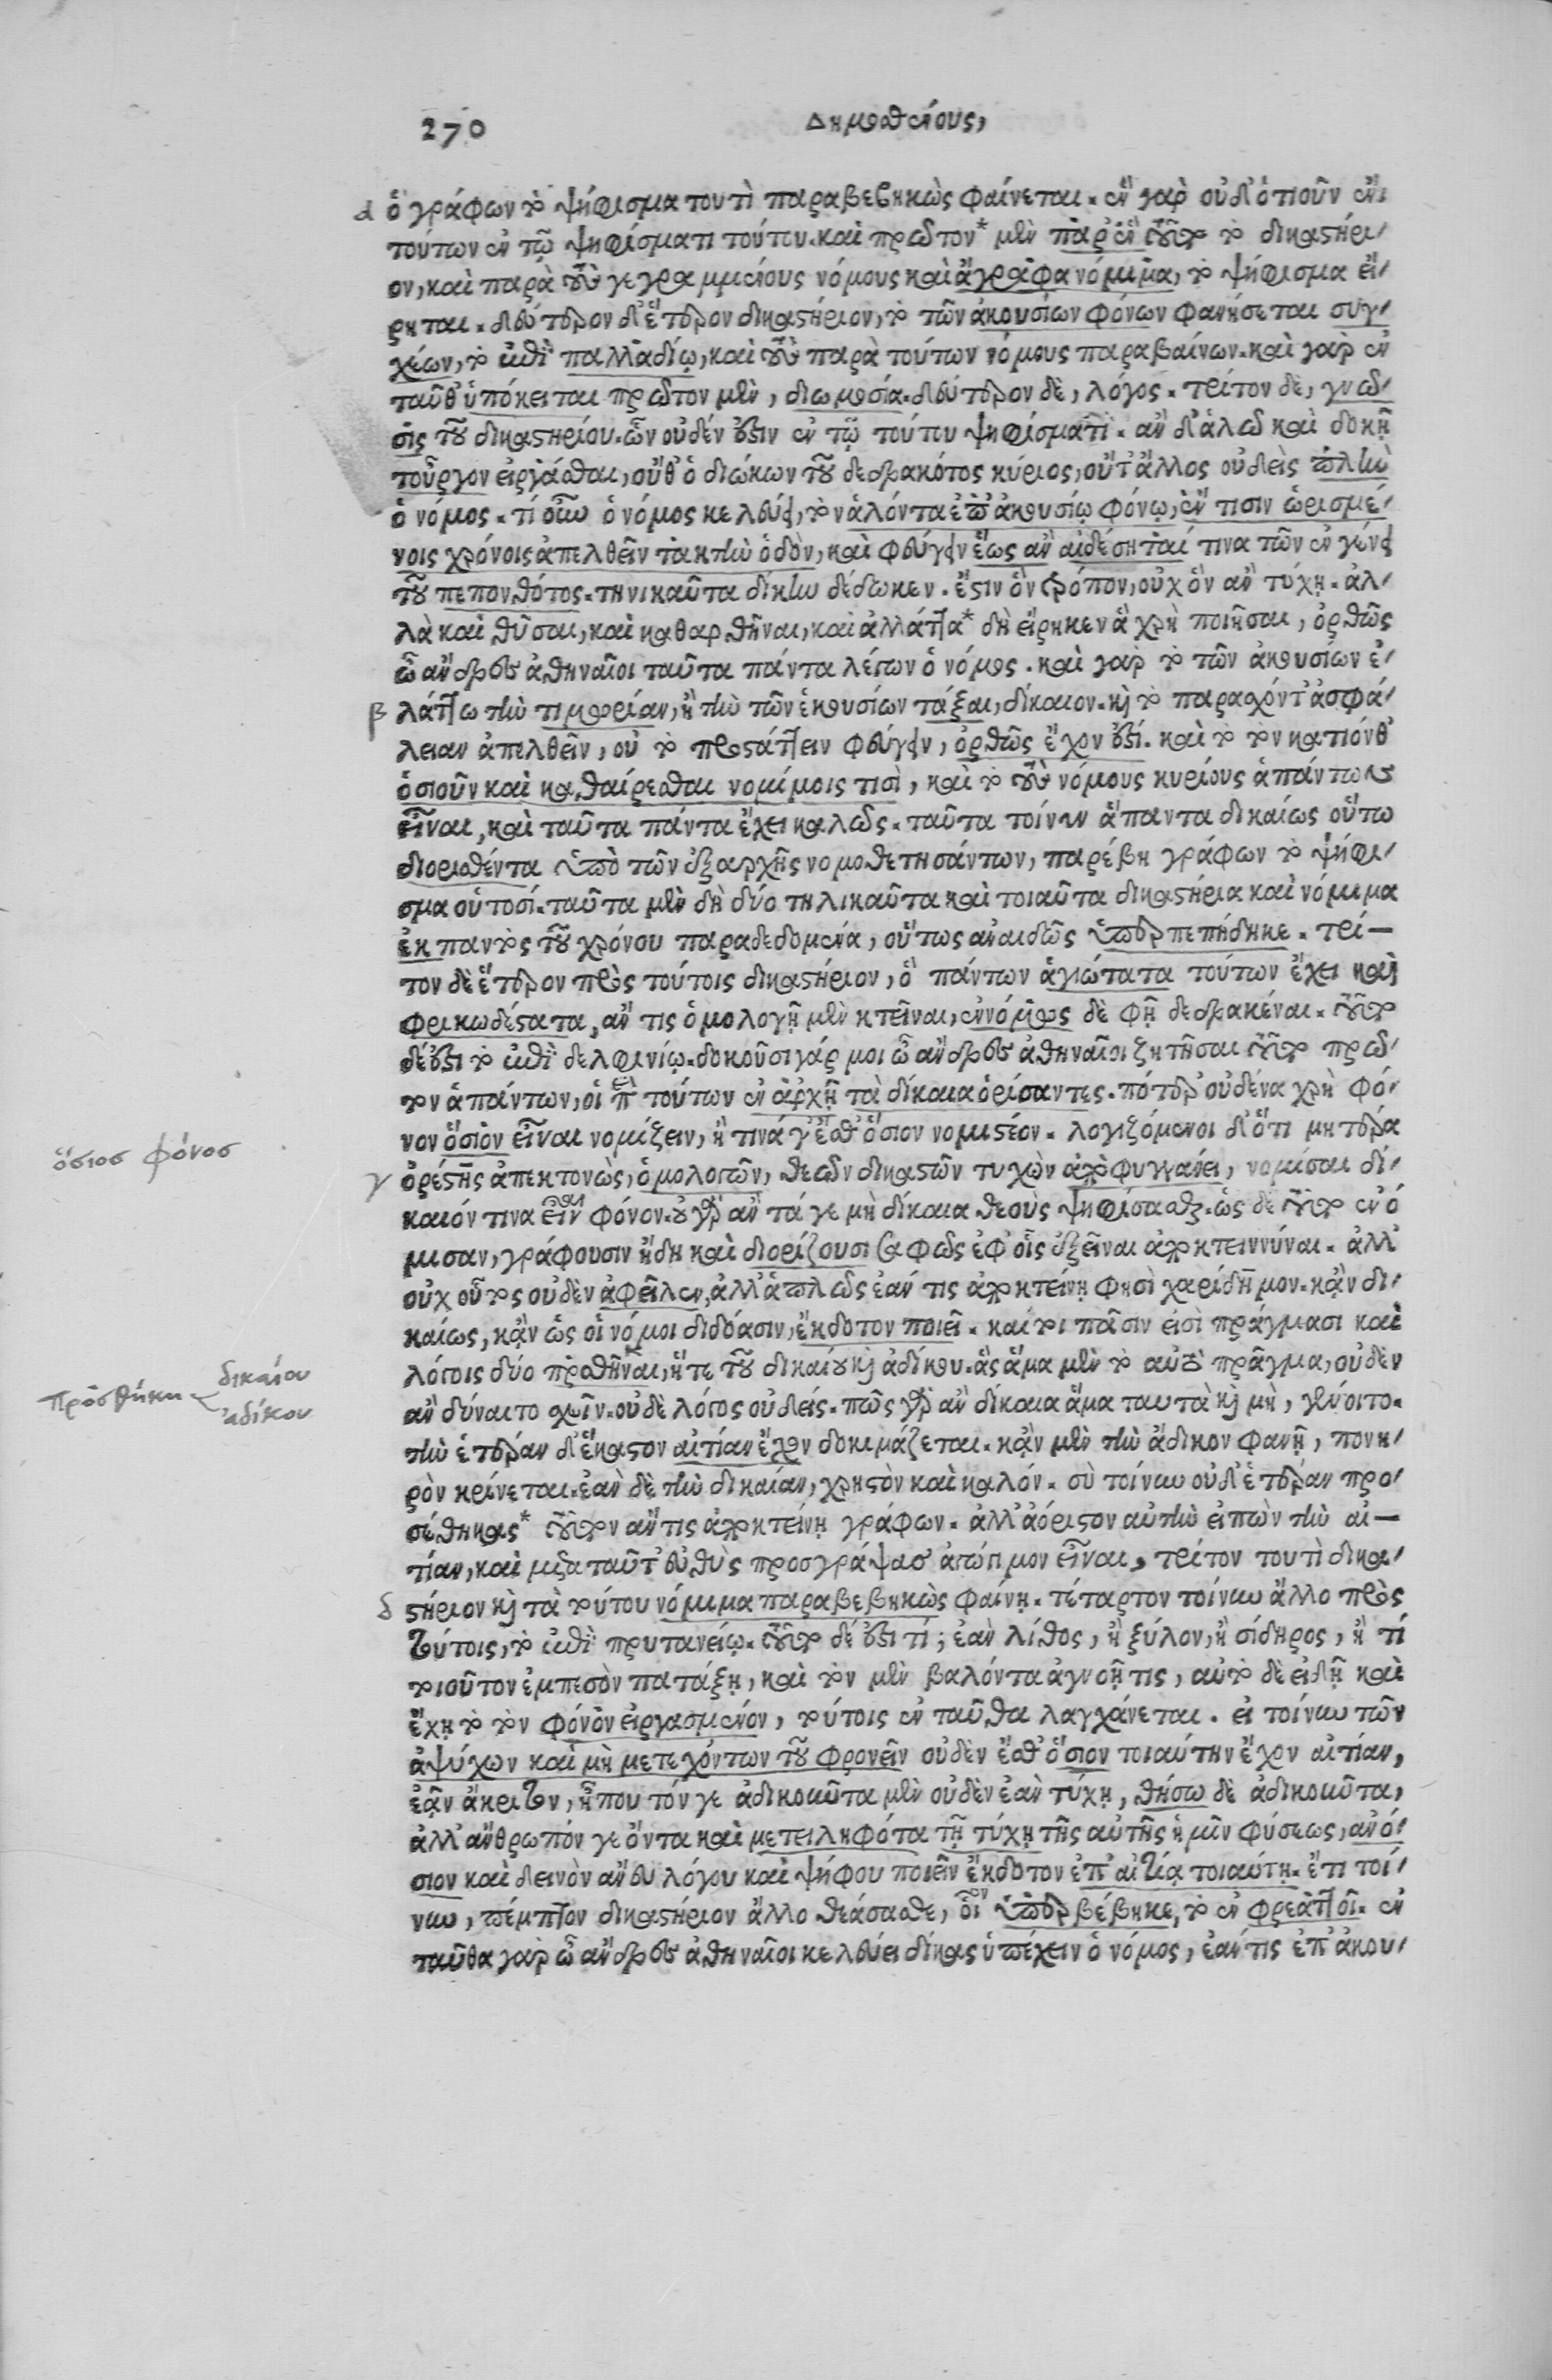 270 Δημοσθένους,
α ὁ γράφων τὸ ψήφισμα τουτὶ παραβεβηκὼς φαίνεται. ἓν γὰρ οὐδ' ὁτιοῦν ἔνι
τούτων ἐν τῷ ψηφίσματι τούτου. καὶ πρῶτον* μὲν παρ' ἓν τοῦτο τὸ δικαστήρι-
ον, καὶ παρὰ τοὺς γεγραμμένους νόμους καὶ ἄγραφα νόμιμα, τὸ ψήφισμα εἴ-
ρηται. δεύτερον δ' ἕτερον δικαστήριον, τὸ τῶν ἀκουσίων φόνων φανήσεται συγ-
χέων, τὸ ἐπὶ παλλαδίῳ, καὶ τοὺς παρὰ τούτων νόμους παραβαίνων. καὶ γὰρ ἐν
ταῦθ' ὑπόκειται πρῶτον μὲν, διωμοσία. δεύτερον δὲ, λόγος. τρίτον δὲ, γνῶ-
σις τοῦ δικαστηρίου. ὧν οὐδέν ἐστιν ἐν τῷ τούτου ψηφίσματι. ἂν δ' ἁλῶ καὶ δοκῇ
τοὖργον εἰργάσθαι, οὔθ' ὁ διώκων τοῦ δεδρακότος κύριος, οὔτ' ἄλλος οὐδεὶς πλὴν
ὁ νόμος. τί οὖν ὁ νόμος κελεύει, τὸν ἁλόντα ἐπ' ἀκουσίῳ φόνῳ, ἔν τισιν ὡρισμέ-
νοις χρόνοις ἀπελθεῖν τακτὴν ὁδὸν, καὶ φεύγειν ἕως ἂν αἰδέσηταί τινα τῶν ἐν γένει
τοῦ πεπονθότος. τηνικαῦτα δίκην δέδωκεν. ἔστιν ὃν τρόπον, οὐχ ὃν ἂν τύχῃ. ἀλ-
λὰ καὶ θῦσαι, καὶ καθαρθῆναι, καὶ ἀλλάττα* δὴ εἴρηκεν ἃ χρὴ ποιῆσαι, ὀρθῶς
ὦ ἄνδρες ἀθηναῖοι ταῦτα πάντα λέγων ὁ νόμος. καὶ γὰρ τὸ τῶν ἀκουσίων ἐ-
β λάττω τὴν τιμωρίαν, ἢ τὴν τῶν ἑκουσίων τάξαι, δίκαιον. καὶ τὸ παρασχόντ' ἀσφά-
λειαν ἀπελθεῖν, οὗ τὸ προστάττειν φεύγειν, ὀρθῶς ἔχον ἐστί. καὶ τὸ τὸν κατιόνθ'
ὁσιοῦν καὶ καθαίρεσθαι νομίμοις τισὶ, καὶ τὸ τοὺς νόμους κυρίους ἁπάντων
εἶναι, καὶ ταῦτα πάντα ἔχει καλῶς. ταῦτα τοίνυν ἅπαντα δικαίως οὕτω
διορισθέντα ὑπὸ τῶν ἐξαρχῆς νομοθετησάντων, παρέβη γράφων τὸ ψήφι-
σμα οὑτοσί. ταῦτα μὲν δὴ δύο τηλικαῦτα καὶ τοιαῦτα δικαστήρια καὶ νόμιμα
ἐκ παντὸς τοῦ χρόνου παραδεδομένα, οὕτως ἀναιδῶς ὑπερπεπήδηκε. τρί-
τον δὲ ἕτερον πρὸς τούτοις δικαστήριον, ὃ πάντων ἁγιώτατα τούτων ἔχει καὶ
φρικωδέστατα, ἄν τις ὁμολογῇ μὲν κτεῖναι, ἐννόμως δὲ φῇ δεδρακέναι. τοῦτο
δέ ἐστι τὸ ἐπὶ δελφινίῳ. δοκοῦσι γάρ μοι ὦ ἄνδρες ἀθηναῖοι ζητῆσαι τοῦτο πρῶ-
τον ἁπάντων, οἱ περὶ τούτων ἐν ἀρχῇ τὰ δίκαια ὁρίσαντες. πότερ' οὐδένα χρὴ φό-
νον ὅσιον εἶναι νομίζειν, ἤ τινά γ' ἔσθ' ὅσιον νομιστέον. λογιζόμενοι δ' ὅτι μητέρα
ὅσιος φόνος
γ ὀρέστης ἀπεκτονὼς, ὁμολογῶν, θεῶν δικαστῶν τυχὼν ἀποφυγγάνει, νομίσαι δί-
καιόν τινα εἶναι φόνον. οὐ γὰρ ἂν τά γε μὴ δίκαια θεοὺς ψηφίσασθαι. ὡς δὲ τοῦτο ἐνό
μισαν, γράφουσιν ἤδη καὶ διορίζουσι σαφῶς ἐφ' οἷς ἐξεῖναι ἀποκτειννύναι. ἀλλ'
οὐχ οὗτος οὐδὲν ἀφεῖλεν, ἀλλ' ἁπλῶς ἐάν τις ἀποκτείνῃ φησὶ χαρίδημον. κἂν δι-
καίως, κἂν ὡς οἱ νόμοι διδόασιν, ἔκδοτον ποιεῖ. καί τοι πᾶσιν εἰσὶ πράγμασι καὶ
λόγοις δύο προσθῆκαι, ἥ τε τοῦ δικαίου καὶ ἀδίκου. ἃς ἅμα μὲν τὸ αὐτὸ πρᾶγμα, οὐδὲν
προσθήκη δικαίου
ἀδίκου
ἂν δύναιτο σχεῖν. οὐδὲ λόγος οὐδείς. πῶς γὰρ ἂν δίκαια ἅμα ταυτὰ καὶ μὴ, γένοιτο.
τὴν ἑτέραν δ' ἕκαστον αἰτίαν ἔχον δοκιμάζεται. κἂν μὲν τὴν ἄδικον φανῇ, πονη-
ρὸν κρίνεται. ἐὰν δὲ τὴν δικαίαν, χρηστὸν καὶ καλόν. σὺ τοίνυν οὐδ' ἑτέραν προ-
σέθηκας* τοῦτον ἄν τις ἀποκτείνῃ γράφων. ἀλλ' ἀόριστον αὐτὴν εἰπὼν τὴν αἰ-
τίαν, καὶ μετὰ ταῦτ' εὐθὺς προσγράψας ἀγώγιμον εἶναι, τρίτον τουτὶ δικα-
δ στήριον καὶ τὰ τούτου νόμιμα παραβεβηκὼς φαίνῃ. τέταρτον τοίνυν ἄλλο πρὸς
τούτοις, τὸ ἐπὶ πρυτανείῳ. τοῦτο δέ ἐστι τί; ἐὰν λίθος, ἢ ξύλον, ἢ σίδηρος, ἤ τί
τοιοῦτον ἐμπεσὸν πατάξῃ, καὶ τὸν μὲν βαλόντα ἀγνοῇ τις, αὐτὸ δὲ εἰδῇ καὶ
ἔχῃ τὸ τὸν φόνον εἰργασμένον, τούτοις ἐνταῦθα λαγχάνεται. εἰ τοίνυν τῶν
ἀψύχων καὶ μὴ μετεχόντων τοῦ φρονεῖν οὐδὲν ἔσθ' ὅσιον τοιαύτην ἔχον αἰτίαν,
ἐᾷν ἄκριτον, ἦπου τόν γε ἀδικοῦντα μὲν οὐδὲν ἐὰν τύχῃ, θήσω δὲ ἀδικοῦντα,
ἀλλ' ἄνθρωπόν γε ὄντα καὶ μετειληφότα τῇ τύχῃ τῆς αὐτῆς ἡμῖν φύσεως, ἀνό-
σιον καὶ δεινὸν ἄνευ λόγου καὶ ψήφου ποιεῖν ἔκδοτον ἐπ' αἰτίᾳ τοιαύτῃ. ἔτι τοί-
νυν, πέμπτον δικαστήριον ἄλλο θεάσασθε, οἷον ὑπερβέβηκε, τὸ ἐν φρεαττοῖ. ἐν
ταῦθα γὰρ ὦ ἄνδρες ἀθηναῖοι κελεύει δίκας ὑπέχειν ὁ νόμος, ἐάν τις ἐπ' ἀκου-